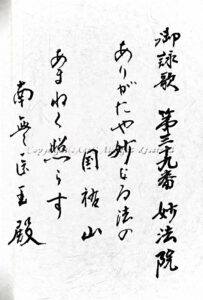 御詠歌 第三十九番 妙法院
ありがたや妙なる法の
国祐山
あまねく照らす
南無医王殿